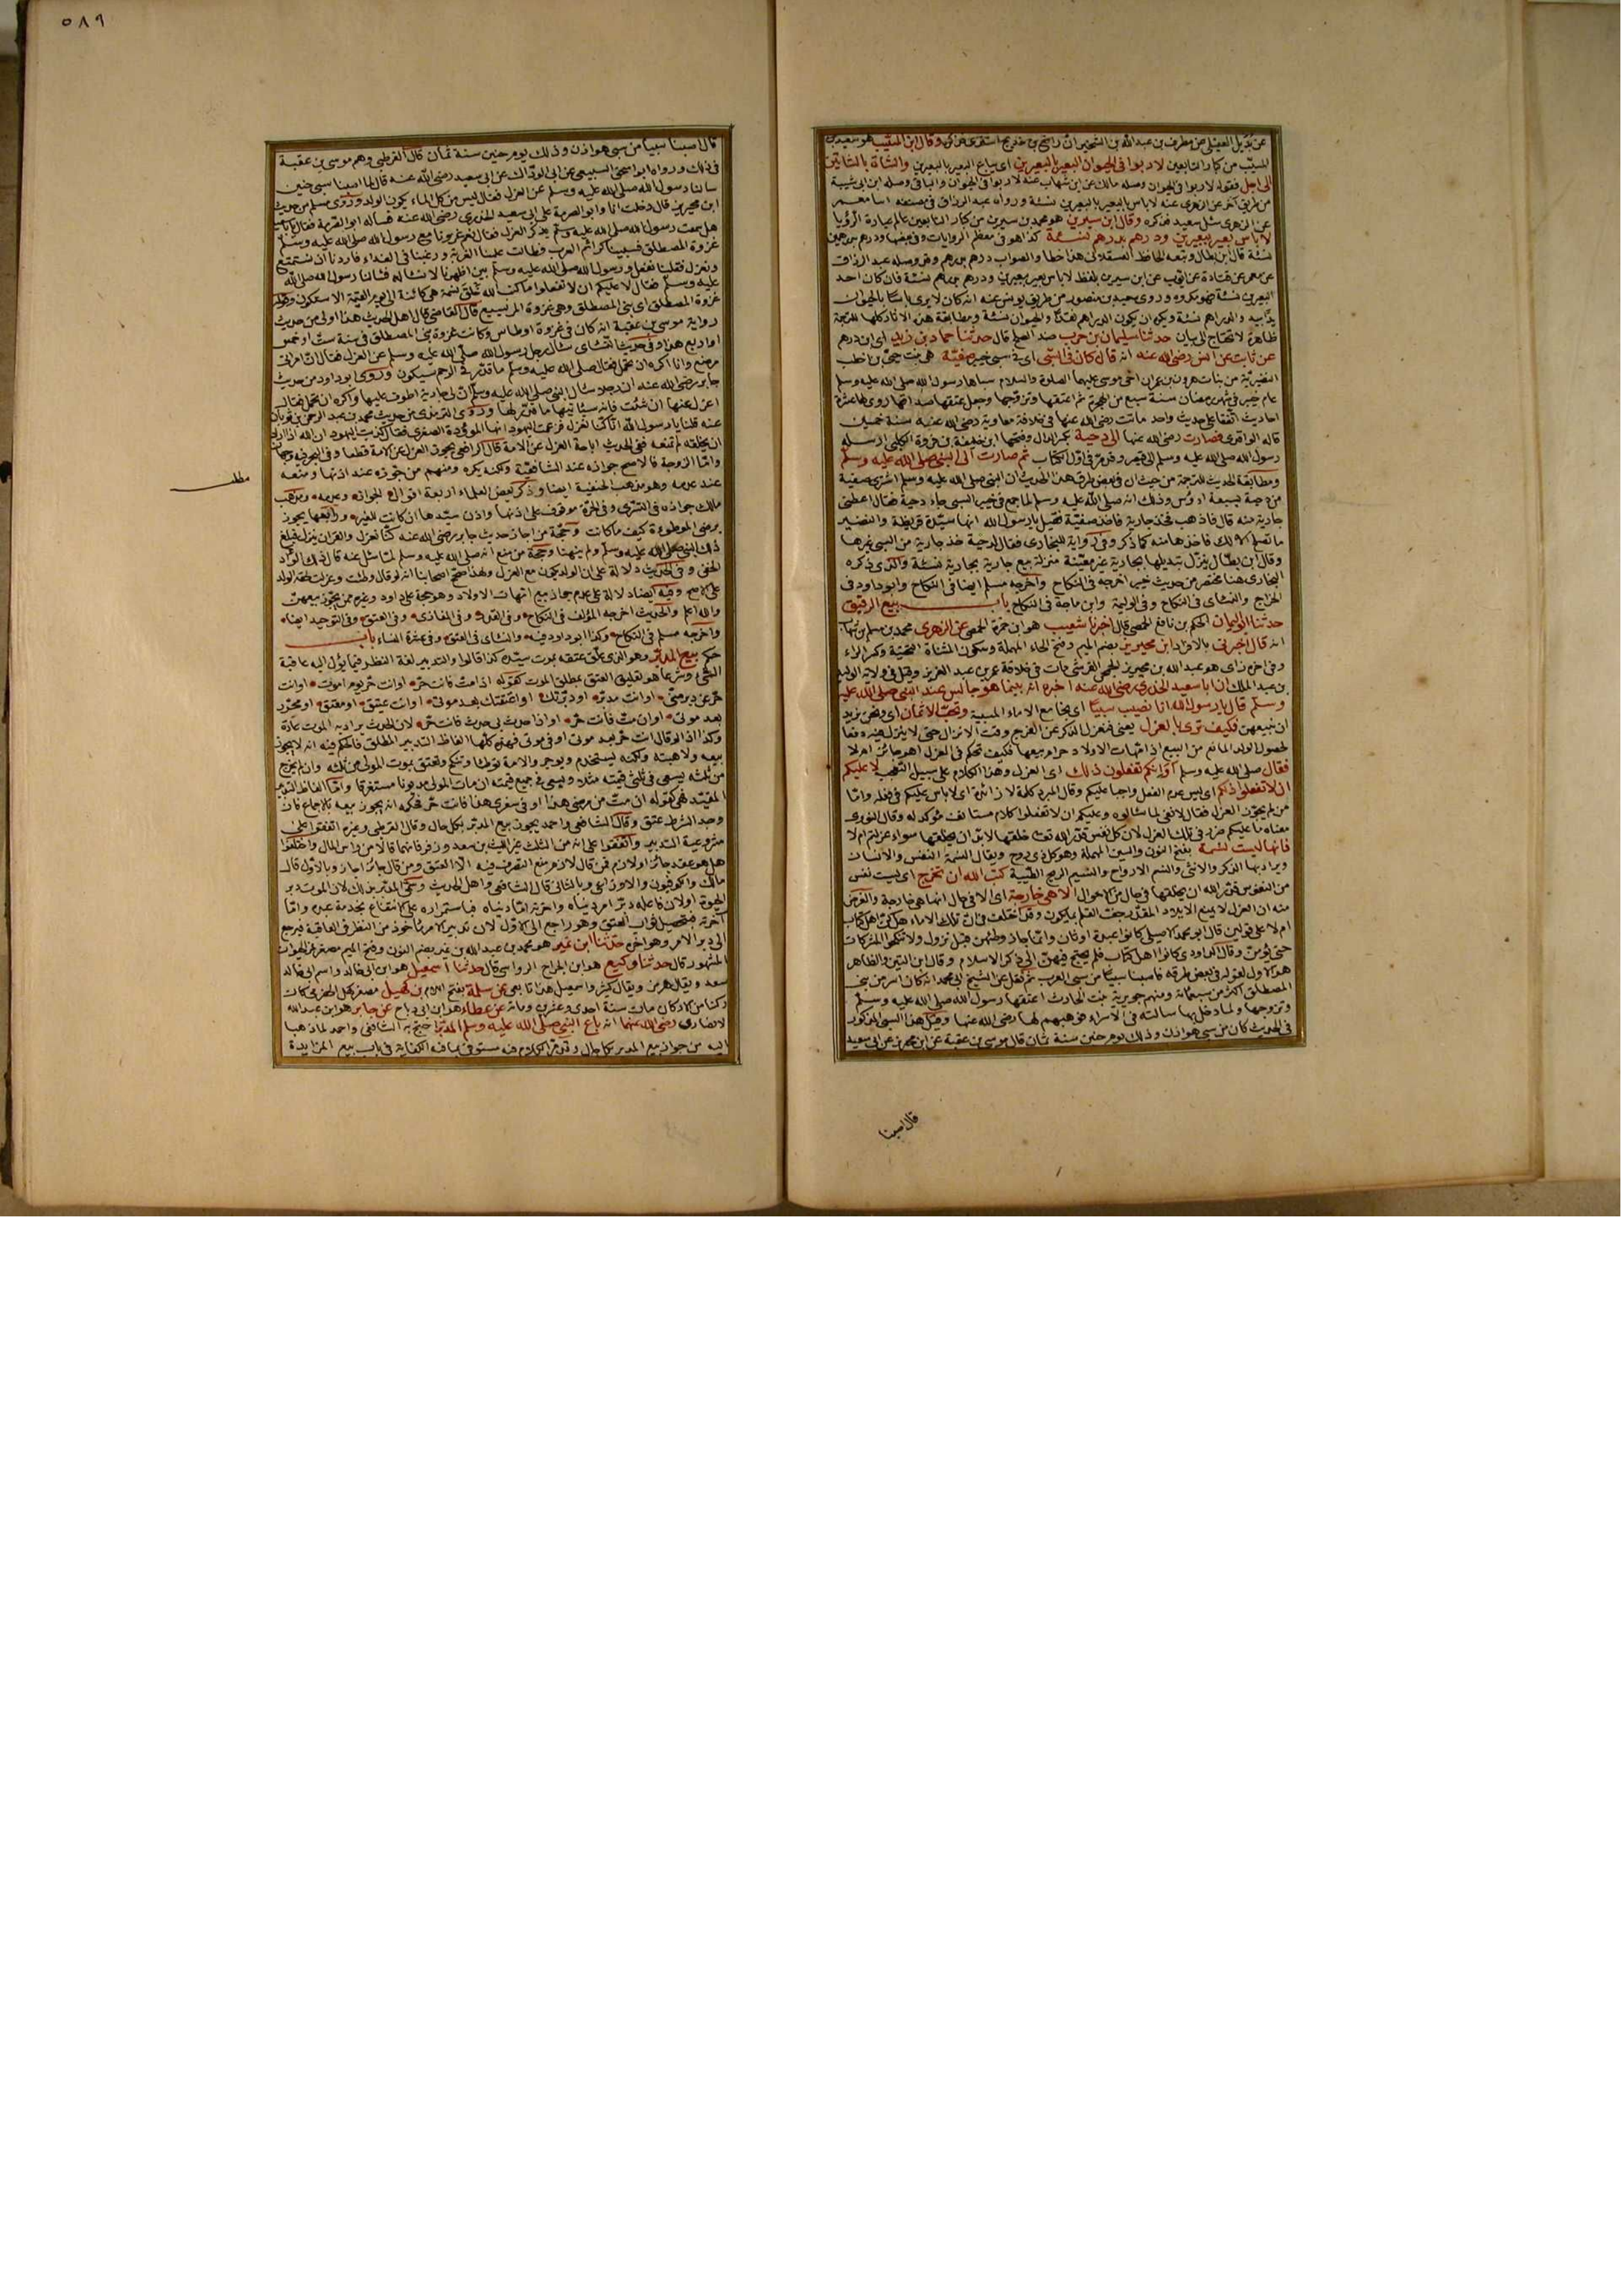 عن بديل العقيلي عن مطرف بن عبد الله بن الشخير ان رافع بن خديج اشترى فذكره وقال ابن المسيب هو سعيد بن
المسيب من كبار التابعين لا ربوا في الحيوان البعير بالبعيرين اى يباع البعير بالبعيرين والشاة بالشاتين
الى اجل فقوله لا ربوا في الحيوان وصله مالك عن ابن شهاب عنه لا ربوا في الحيوان والباقي وصله ابن ابى شيبة
من طريق آخر عن الزهرى عنه لا باس بالبعير بالبعيرين نسئة ورواه عبد الرزاق في مصنفه انبا معمر
عن الزهرى سئل سعيد فذكره وقال ابن سيرين هو محمد بن سيرين من كبار التابعين عالم بعبارة الرؤيا
لا باس بعير ببعيرين ودرهم بدرهم نسئة كذا هو في معظم الروايات وفي بعضها ودرهم بدرهمين
نسئة قال ابن بطال وتبعه الحافظ العسقلانى هذا خطا والصواب درهم بدرهم وقد وصله عبد الرزاق
عن معمر عن قتادة عن ايوب عن ابن سيرين بلفظ لا باس بعير ببعيرين ودرهم بدرهم نسئة فان كان احد
البعيرين نسئة فهو مكروه وروى سعيد بن منصور من طريق يونس عنه انه كان لا يرى باسًا بالحيوان
يدًا بيد والدراهم نسئة ويكره ان يكون الدراهم نقدًا والحيوان نسئة ومطابقة هذه الاثار كلها للترجمة
ظاهرة لا تحتاج الى بيان حدثنا سليمان بن حرب ضد الصلح قال حدثنا حماد بن زيد اى ابن درهم
عن ثابت عن انس رضى الله عنه انه قال كان في السبى اى في سبى خيبر صفية هى بنت حيى بن اخطب
النضيرية من بنات هرون بن عمران اخى موسى عليهما الصلوة والسلام سباها رسول الله صلى الله عليه وسلم
عام خيبر في شهر رمضان سنة سبع من الهجرة ثم اعتقها وتزوجها وجعل عتقها صداقها روى لها عشرة
احاديث اتفقا على حديث واحد ماتت رضى الله عنها في خلافة معاوية رضى الله عنه سنة خمسين
قاله الواقدى فصارت رضى الله عنها الى دحية بكسر الدال وفتحها ابن خليفة بن فروة الكلبى ارسله
رسول الله صلى الله عليه وسلم الى قيصر وقد مر في اول الكتاب ثم صارت الى النبى صلى الله عليه وسلم
ومطابقة الحديث للترجمة من حيث ان في بعض طرق هذا الحديث ان النبى صلى الله عليه وسلم اشترى صفية
من دحية بسبعة ارؤس وذلك انه صلى الله عليه وسلم لما جمع في خيبر السبى جاء دحية فقال اعطنى
جارية منه قال فاذهب فخذ جارية فاخذ صفية فقيل يا رسول الله انها سيدة قريظة والنضير
ما تصلح الا لك فاخذها منه كما ذكر وفي رواية للبخارى فقال لدحية خذ جارية من السبى غيرها
وقال ابن بطال ينزل تبديلها بجارية غير معينة منزلة بيع جارية بجارية نسئة والذى ذكره
البخارى هنا مختصر من حديث خيبر اخرجه في النكاح واخرجه مسلم ايضا في النكاح وابو داود في
الخراج والنسائى في النكاح وفي الوليمة وابن ماجة في النكاح باب بيع الرقيق
حدثنا ابو اليمان الحكم بن نافع الحمصى قال اخبرنا شعيب هو ابن حمزة الحمصى عن الزهرى محمد بن مسلم بن شهاب
انه قال اخبرنى بالافراد ابن محيريز بضم الميم وفتح الحاء المهملة وسكون المثناة التحتية وكسر الراء
وفي اخره زاى هو عبد الله بن محيريز الجمحى القرشى مات في خلافة عمر بن عبد العزيز وقيل في ولاية الوليد
بن عبد الملك ان ابا سعيد الخدرى رضى الله عنه اخبره انه بينما هو جالس عند النبى صلى الله عليه
وسلم قال يا رسول الله انا نصيب سبيًا اى نجامع الاماء المسبية ونحب الاثمان اى ونحن نريد
ان نبيعهن فكيف ترى بالعزل يعنى فنعزل الذكر عن الفرج وقت الانزال حتى لا ينزل فيه دفعا
لحصول الولد المانع من البيع اذ امهات الاولاد حرام بيعها فكيف تحكم في العزل اهو جائز ام لا
فقال صلى الله عليه وسلم أوَ انكم تفعلون ذلك اى العزل وهذا الكلام على سبيل التعجب لا عليكم
ان لا تفعلوا ذلكم اى ليس عدم الفعل واجبا عليكم وقال المبرد كلمة لا زائدة اى لا باس عليكم في فعله واما
من لم يجوز العزل فقال لا نفى لما سالوه وعليكم ان لا تفعلوا كلام مستانف مؤكد له وقال النووى
معناه ما عليكم ضرر في ترك العزل لان كل نفس قدر الله تعالى خلقها لابد ان يخلقها سواء عزلتم ام لا
فانها ليست نسمة بفتح النون والسين المهملة وهو كل ذى روح ويقال النسمة النفس والانسان
ويراد بها الذكر والانثى والنسم الارواح والنسيم الريح الطيبة كتب الله ان تخرج اى ليست نفس
من النفوس قدر الله ان يخلقها في حال من الاحوال الا هى خارجة اى الا في حال انها هى خارجة والغرض
منه ان العزل لا يمنع الايلاد المقدر جف القلم بما يكون وقد اختلف في ان تلك الاماء هل كن اهل كتاب
ام لا على قولين قال ابو محمد الاصيلى كانوا عبدة اوثان وانما جاز وطئهن قبل نزول ولا تنكحوا المشركات
حتى يؤمن وقال الداودى كانوا اهل كتاب فلم يحتج فيهن الى ذكر الاسلام وقال ابن التين والظاهر
هو الاول لقوله في بعض طرقه فاصبنا سبيًا من سبى العرب ثم نقل عن الشيخ ابى محمد انه كان اسر من بنى
المصطلق اكثر من سبعمائة ومنهم جويرية بنت الحارث اعتقها رسول الله صلى الله عليه وسلم
وتزوجها ولما دخل بها سالته في الاسراء فوهبهم لها رضى الله عنها وقيل هذا السبى المذكور
في الحديث كان من سبى هوازن وذلك يوم حنين سنة ثمان قال موسى بن عقبة عن ابن محيريز عن ابى سعيد
قال اصبنا
٥٨٩
قال اصبنا سبيًا من سبى هوازن وذلك يوم حنين سنة ثمان قال القرطبى وهم موسى بن عقبة
في ذلك ورواه ابو اسحق السبيعى عن ابى الوداك عن ابى سعيد رضى الله عنه قال لما اصبنا سبى حنين
سالنا رسول الله صلى الله عليه وسلم عن العزل فقال ليس من كل الماء يكون الولد وروى مسلم من حديث
ابن محيريز قال دخلت انا وابو الصرمة على ابى سعيد الخدرى رضى الله عنه فساله ابو الصرمة فقال يا ابا سعيد
هل سمعت رسول الله صلى الله عليه وسلم يذكر العزل فقال نعم غزونا مع رسول الله صلى الله عليه وسلم
غزوة المصطلق فسبينا كرائم العرب وطالت علينا العزبة ورغبنا في الفداء فاردنا ان نستمتع
ونعزل فقلنا نفعل ورسول الله صلى الله عليه وسلم بين اظهرنا لا نساله فسالنا رسول الله صلى الله
عليه وسلم فقال لا عليكم ان لا تفعلوا ما كتب الله خلق نسمة هى كائنة الى يوم القيمة الا ستكون وقوله
غزوة المصطلق اى بنى المصطلق وهى غزوة المريسيع قال القاضى قال اهل الحديث هذا اولى من حديث
رواية موسى بن عقبة انه كان في غزوة اوطاس وكانت غزوة بنى المصطلق في سنة ست او خمس
او اربع هذا وفي حديث النسائى سال رجل رسول الله صلى الله عليه وسلم عن العزل فقال ان امراتى
مرضع وانا اكره ان تحمل فقال صلى الله عليه وسلم ما قدر في الرحم سيكون وروى ابو داود من حديث
جابر رضى الله عنه ان رجلا سال النبى صلى الله عليه وسلم ان لى جارية اطوف عليها واكره ان تحمل فقال
اعزل عنها ان شئت فانه سياتيها ما قدر لها وروى الترمذى من حديث محمد بن عبد الرحمن بن ثوبان
عنه قلنا يا رسول الله انا كنا نعزل فزعمت اليهود انها الموءودة الصغرى فقال كذبت اليهود ان الله اذا اراد
ان يخلقه لم تمنعه ففى الحديث اباحة العزل عن الامة قال الرافعى يجوز العزل عن الامة قطعا وفي البحر فيه وجهان
واما الزوجة فالاصح جوازه عند الشافعية ولكنه يكره ومنهم من جوزه عند اذنها ومنعه
عند عدمه وهو مذهب الحنفية ايضا وذكر بعض العلماء اربعة اقوال الجواز وعدمه ومذهب
مطلب
مالك جوازه في التسرى وفي الحرة موقوف على اذنها واذن سيدها ان كانت للغير ورابعها يجوز
برضى الموطوءة كيف ما كانت وحجة من اجاز حديث جابر رضى الله عنه كنا نعزل والقران ينزل فبلغ
ذلك النبى صلى الله عليه وسلم ولم ينهنا وحجة من منع انه صلى الله عليه وسلم لما سئل عنه قال ذلك الواد
الخفى وفي الحديث دلالة على ان الولد يكون مع العزل ولهذا صحح اصحابنا انه لو قال وطئت وعزلت لحقه الولد
على الاصح وفيه ايضا دلالة على عدم جواز بيع امهات الاولاد وهو حجة على داود وغيره ممن يجوز بيعهن
والله اعلم والحديث اخرجه المؤلف في النكاح وفي القدر وفي المغازى وفي العتق وفي التوحيد ايضا
واخرجه مسلم في النكاح وكذا ابو داود فيه والنسائى في العتق وفي عشرة النساء باب
حكم بيع المدبر وهو الذى علق عتقه بموت سيده كذا قالوا والتدبير لغة النظر فيما يؤل اليه عاقبة
الشئ وشرعا هو تعليق العتق بمطلق الموت كقوله اذا مت فانت حر او انت حر يوم اموت او انت
حر عن دبر منى او انت مدبر او دبرتك او اعتقتك بعد موتى او انت عتيق او معتق او محرر
بعد موتى او ان مت فانت حر او اذا حدث بى حدث فانت حر لان الحدث يراد به الموت عادة
وكذا اذا لو قال انت حر بعد موتى او في موتى فهذه كلها الفاظ التدبير المطلق فالحكم فيه انه لا يجوز
بيعه ولا هبته ولكنه يستخدم ويوجر والامة توطأ وتنكح وتعتق بموت المولى من ثلثه وان لم يخرج
من ثلثه يسعى في ثلثى قيمته مثلا ويسعى في جميع قيمته ان مات المولى مديونا مستغرقا واما الفاظ التدبير
المقيد فهى كقوله ان مت من مرضى هذا او في سفرى هذا فانت حر فحكمه انه يجوز بيعه بالاجماع فان
وجد الشرط عتق وقال الشافعى واحمد يجوز بيع المدبر بكل حال وقال القرطبى وغيره اتفقوا على
مشروعية التدبير واتفقوا على انه من الثلث غير الليث بن سعد وزفر فانهما قالا من راس المال واختلفوا
هل هو عقد جائز او لازم فمن قال لازم منع التصرف فيه الا بالعتق ومن قال جائز اجاز وبالاول قال
مالك والكوفيون والاوزاعى وبالثانى قال الشافعى واهل الحديث وسمى المدبر بذلك لان الموت دبر
الحيوة او لان فاعله دبر امر دنياه واخرته اما دنياه فباستمراره على الانتفاع بخدمة عبده واما
آخرته فبتحصيل ثواب العتق وهو راجع الى الاول لان تدبير الامر ماخوذ من النظر في العاقبة فيرجع
الى دبر الامر وهو اخره حدثنا ابن نمير هو محمد بن عبد الله بن نمير بضم النون وفتح الميم مصغر نمر الحيوان
المشهور قال حدثنا وكيع هو ابن الجراح الرواسى قال حدثنا اسمعيل هو ابن ابى خالد واسم ابى خالد
سعد ويقال هرمز ويقال كثير واسمعيل هذا تابعى عن سلمة بفتح اللام بن كهيل مصغر كهل الحضرمى كان
ركنا من الاركان مات سنة احدى وعشرين ومائة عن عطاء هو ابن ابى رباح عن جابر هو ابن عبد الله
الانصارى رضى الله عنهما انه باع النبى صلى الله عليه وسلم المدبر احتج به الشافعى واحمد لما ذهبا
اليه من جواز بيع المدبر بكل حال وقد مر الكلام فيه مستوفى بما فيه الكفاية في باب بيع المزايدة